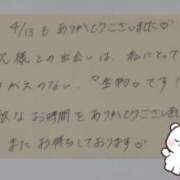 4/13も ありがとうございました♡
兄様との出会いは、私にとって
かがえのない、♡宝物♡です！
敵なお時間をありがとうございまし
またお待ちしております♡